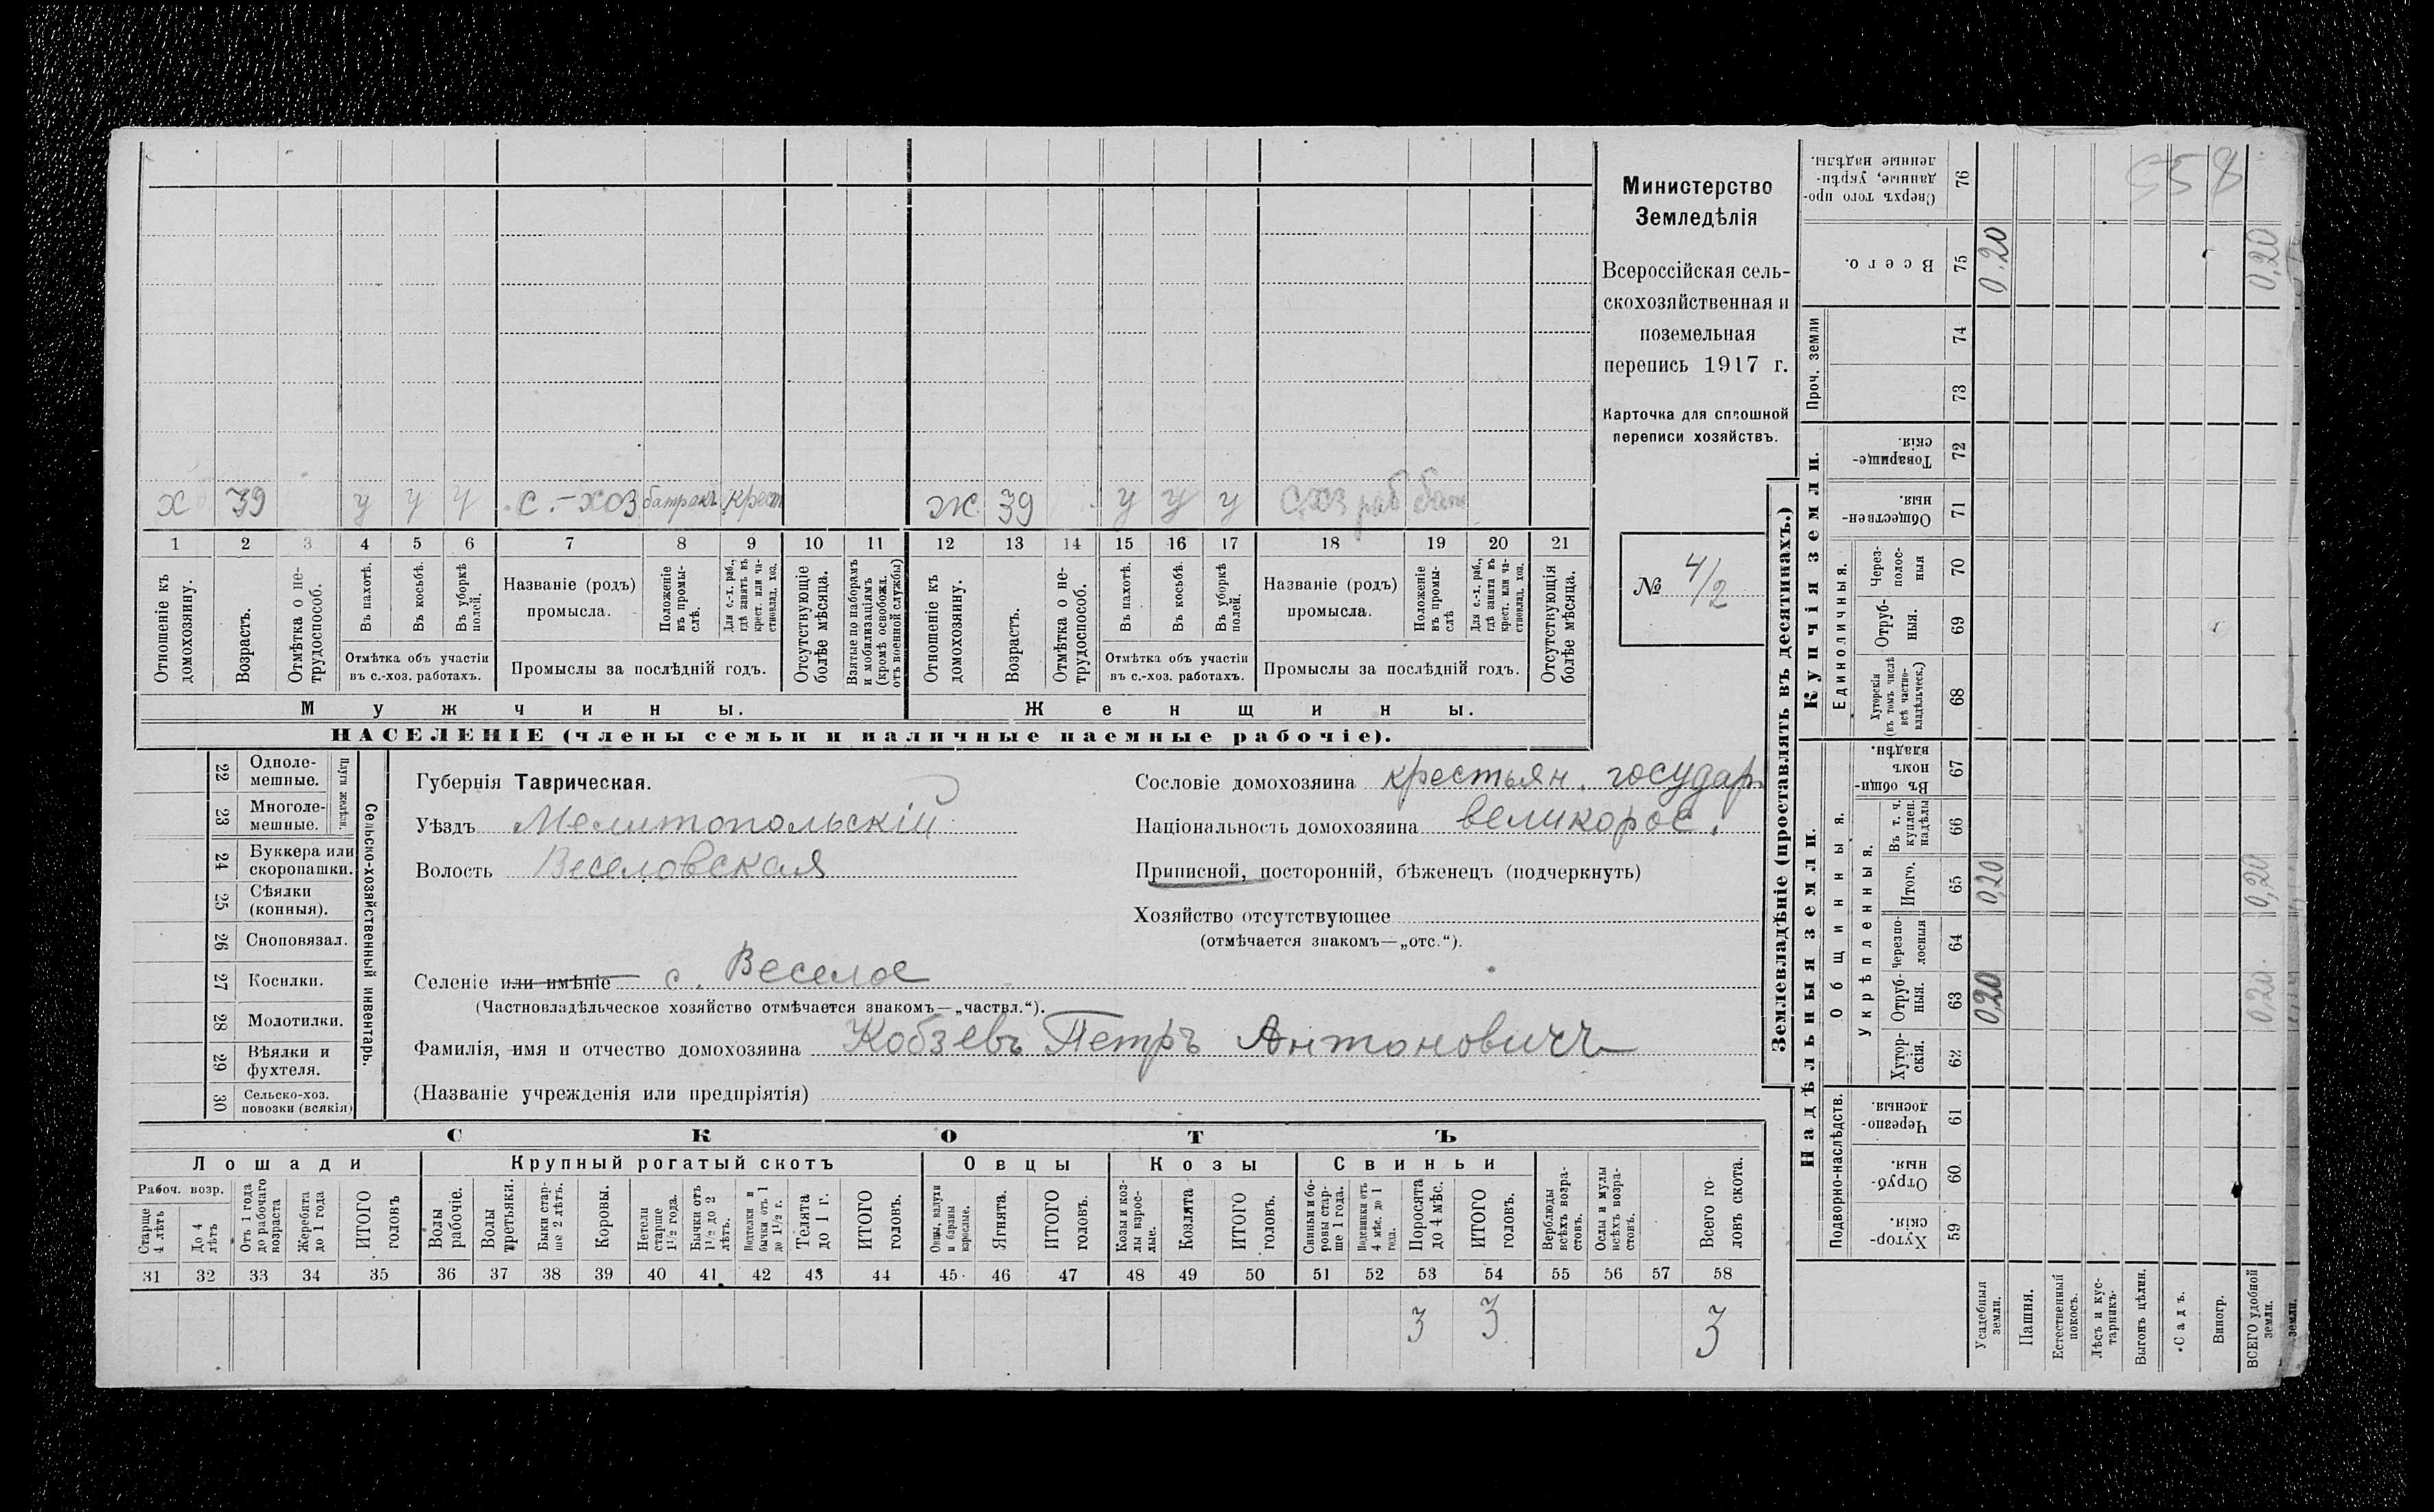 х 39 у у у с.-хоз батракъ крест ж 39 у у у с.хоз раб бат
1 2 3 4 5 6 7 8 9 10 11 12 13 14 15 16 17 18 19 20 21
Отношеніе къ домохозяину.
Возрастъ.
Отмѣтка о не-
трудоспособ.
Въ пахотѣ.
Въ косьбѣ.
Въ уборкѣ полей.
Отмѣтка объ участіи
въ с.-хоз. работахъ.
Названіе (родъ)
промысла.
Положеніе въ промы-
слѣ.
Для с.-х. раб., гдѣ занятъ въ крест. или ча-
стновлад. хоз.
Промыслы за послѣдній годъ.
Отсутствующіе болѣе мѣсяца.
Взятые по наборамъ и мобилизаціямъ (кромѣ освобожд. отъ военной службы)
Отношеніе къ домохозяину.
Возрастъ.
Отмѣтка о не-
трудоспособ.
Въ пахотѣ.
Въ косьбѣ.
Въ уборкѣ полей.
Отмѣтка объ участіи
въ с.-хоз. работахъ.
Названіе (родъ)
промысла.
Положеніе въ промы-
слѣ
Для с.-х. раб., гдѣ занята въ крест. или ча-
стновлад. хоз.
Промыслы за послѣдній годъ.
Отсутствующія болѣе мѣсяца.
Мужчины.
Женщины.
НАСЕЛЕНІЕ (члены семьи и наличные наемные рабочіе).
Министерство
Земледѣлія
Всероссійская сель-
скохозяйственная и
поземельная
перепись 1917 г.
Карточка для сплошной
переписи хозяйствъ.
№ 4/2
22 Одноле-
мешные.
23 Многоле-
мешные.
Плуги желѣзн.
24 Буккера или
скоропашки.
25 Сѣялки
(конныя).
26 Сноповязал.
27 Косилки.
28 Молотилки.
29 Вѣялки и
фухтеля.
30 Сельско-хоз.
повозки (всякія)
Сельско-хозяйственный инвентарь.
Губернія Таврическая.
Уѣздъ Мелитопольскій
Волость Веселовская
Сословіе домохозяина крестьян. государ.
Національность домохозяина великорос.
Приписной, посторонній, бѣженецъ (подчеркнуть)
Хозяйство отсутствующее
(отмѣчается знакомъ—„отс.“).
Селеніе или имѣніе с. Веселое
(Частновладѣльческое хозяйство отмѣчается знакомъ—„частвл.“).
Фамилія, имя и отчество домохозяина Кобзевъ Петръ Антоновичъ
(Названіе учрежденія или предпріятія)
СКОТЪ
Лошади
Крупный рогатый скотъ
Овцы
Козы
Свиньи
Рабоч. возр.
Старше 4 лѣтъ
До 4 лѣтъ
Отъ 1 года до рабочаго возраста
Жеребята до 1 года
ИТОГО головъ
Волы рабочіе.
Волы третьяки.
Быки стар-
ше 2 лѣтъ.
Коровы.
Нетели старше 1½ года.
Бычки отъ 1½ до 2 лѣтъ.
Подтелки и бычки отъ 1 до 1½ г.
Телята до 1 г.
ИТОГО головъ.
Овцы, валухи и бараны взрослые.
Ягнята.
ИТОГО головъ.
Козы и коз-
лы взрос-
лые.
Козлята
ИТОГО головъ.
Свиньи и бо-
ровы стар-
ше 1 года.
Подсвинки отъ 4 мѣс. до 1 года.
Поросята до 4 мѣс.
ИТОГО головъ.
Верблюды всѣхъ возра-
стовъ.
Ослы и мулы всѣхъ возра-
стовъ.
Всего го-
ловъ скота.
31 32 33 34 35 36 37 38 39 40 41 42 43 44 45 46 47 48 49 50 51 52 53 54 55 56 57 58
3 3 3
Землевладѣніе (проставлять въ десятинахъ.)
Надѣльныя земли.
Купчія земли.
Проч. земли
Подворно-наслѣдств.
Общинныя.
Укрѣпленныя.
Единоличныя.
Хутор-
скія. 59
Отруб-
ныя. 60
Черезпо-
лосныя. 61
Хутор-
скія. 62
Отруб-
ныя. 63
Черезпо-
лосныя 64
Итого. 65
Въ т. ч. куплен. надѣлы 66
Въ общин-
номъ владѣн. 67
Хуторскія (въ томъ числѣ всѣ частно-
владѣльческ.) 68
Отруб-
ныя. 69
Через-
полос-
ныя 70
Обществен-
ныя. 71
Товарище-
скія. 72
73
74
Всего. 75
Сверхъ того про-
данные, укрѣп-
ленные надѣлы. 76
Усадебныя земли. 0,20 0,20 0,20
Пашня.
Естественный покосъ.
Лѣсъ и кус-
тарникъ.
Выгонъ цѣлин.
Садъ.
Виногр.
ВСЕГО удобной земли. 0,20 0,20 0,20
земли.
558